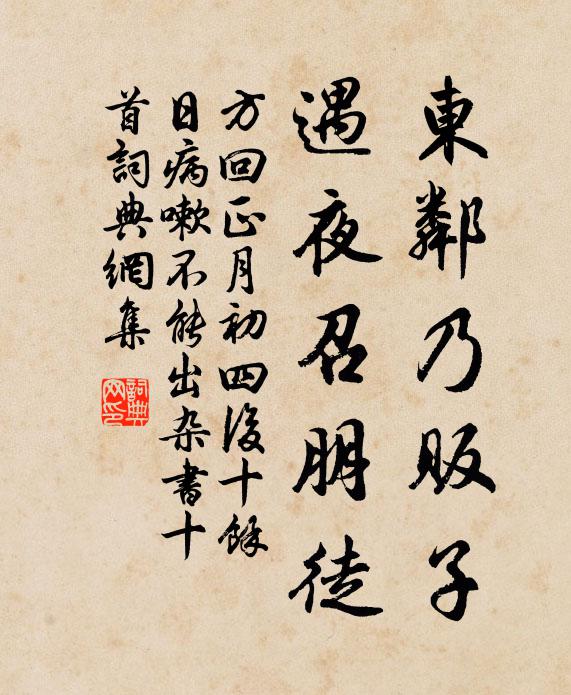 東鄰乃販子
遇夜召朋徒
方回正月初四後十餘
日病嗽不能出杂書十
首詞典網集
詞典
网印